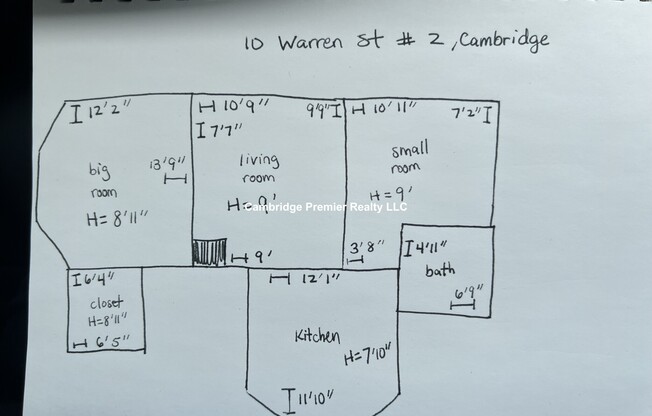 10 Warren St # 2, Cambridge
12'2"
big
room
H= 8'11"
13'9"
10'9"
7'7"
9'9"
living
room
H= 9'
9'
10'11"
7'2"
small
room
H= 9'
3'8"
4'11"
bath
6'9"
6'4"
closet
H=8'11"
6'5"
12'1"
Kitchen
H=7'10"
11'10"
Cambridge Premier Realty LLC